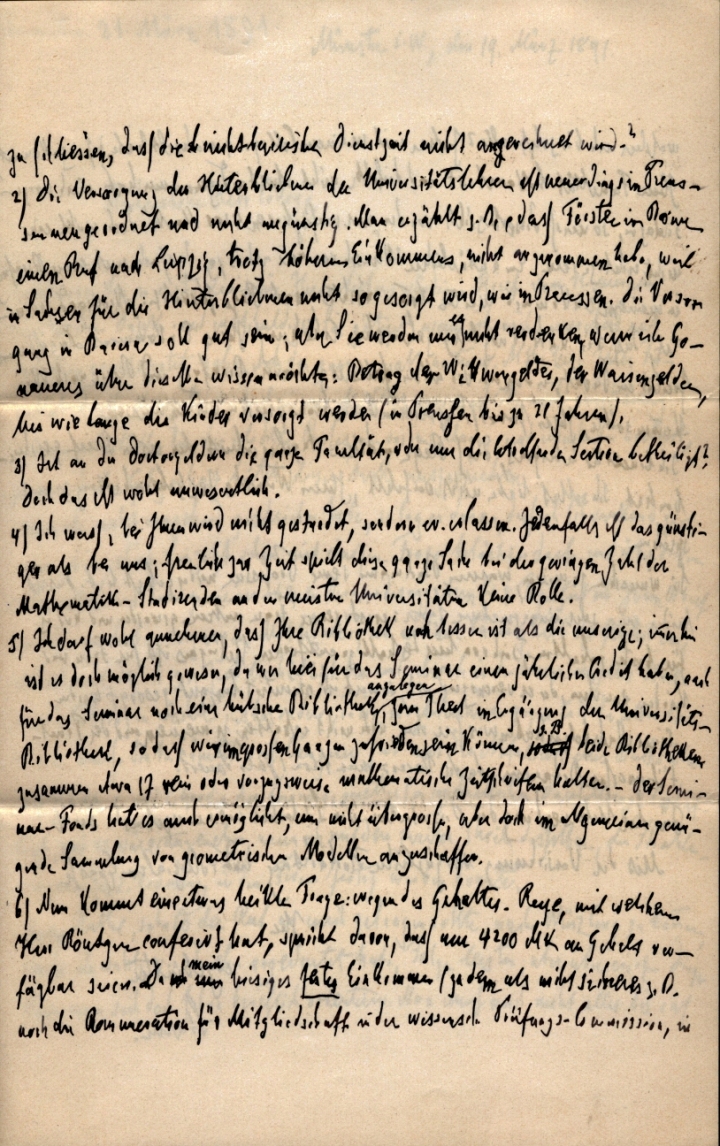 zu schliessen, dass die nichtbayrische Dienstzeit nicht angerechnet wird.?
2) Die Versorgung der Hinterbliebenen der Universitätslehrer ist neuerdings in Preus-
sen neu geordnet und nicht ungünstig. Man erzählt z. B., dass Förster in Bonn
einen Ruf nach Leipzig, trotz höheren Einkommens, nicht angenommen habe, weil
in Sachsen für die Hinterbliebenen nicht so gesorgt wird, wie in Preussen. Die Versor-
gung in Bayern soll gut sein; aber Sie werden mir es nicht verdenken, wenn ich Ge-
naueres über dieselbe wissen möchte: Betrag der Wittwengelder, der Waisengelder,
bis wie lange die Kinder versorgt werden (in Preussen bis zu 21 Jahren).
3) Ist an den Doctorgeldern die ganze Facultät, oder nur die betreffende Section betheiligt?
Doch das ist wohl unwesentlich.
4) Ich weiss, bei Ihnen wird nicht gestundet, sondern ev. erlassen. Jedenfalls ist das günsti-
ger als bei uns; freilich zur Zeit spielt diese ganze Sache bei der geringen Zahl der
Mathematik-Studirenden an den meisten Universitäten keine Rolle.
5) Ich darf wohl annehmen, dass Ihre Bibliothek noch besser ist als die unserige; immerhin
ist es doch möglich gewesen, da wir hier für das Seminar einen jährlichen Credit haben, auch
für das Seminar noch eine hübsche Bibliothek anzulegen, zum Theil in Ergänzung der Universitäts-
Bibliothek, so dass wir im grossen Ganzen zufrieden sein können, z. B. beide Bibliotheken
zusammen etwa 17 rein oder vorzugsweise mathematische Zeitschriften halten. – Der Semi-
nar-Fonds hat es auch ermöglicht, eine nicht übergrosse, aber doch im Allgemeinen genü-
gende Sammlung von geometrischen Modellen anzuschaffen.
6) Nun kommt eine etwas heikle Frage: wegen des Gehaltes. Reye, mit welchem
Herr Röntgen conferirt hat, spricht davon, dass nur 4200 Mk an Gehalt ver-
fügbar seien. Da mein hiesiges festes Einkommen (zu dem als nicht sicheres z. B.
noch die Remuneration für Mitgliedschaft in der wissensch. Prüfungs-Commission, in